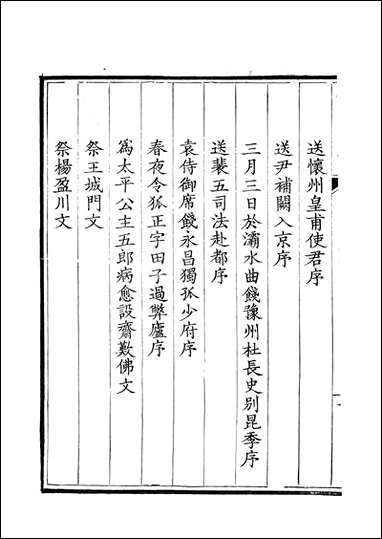 送懷州皇甫使君序
送尹補闕入京序
三月三日於灞水曲餞豫州杜長史别昆季序
送裴五司法赴都序
袁侍御席餞永昌獨孤少府序
春夜令狐正字田子過弊廬序
爲太平公主五郎病愈設齋歎佛文
祭王城門文
祭楊盈川文